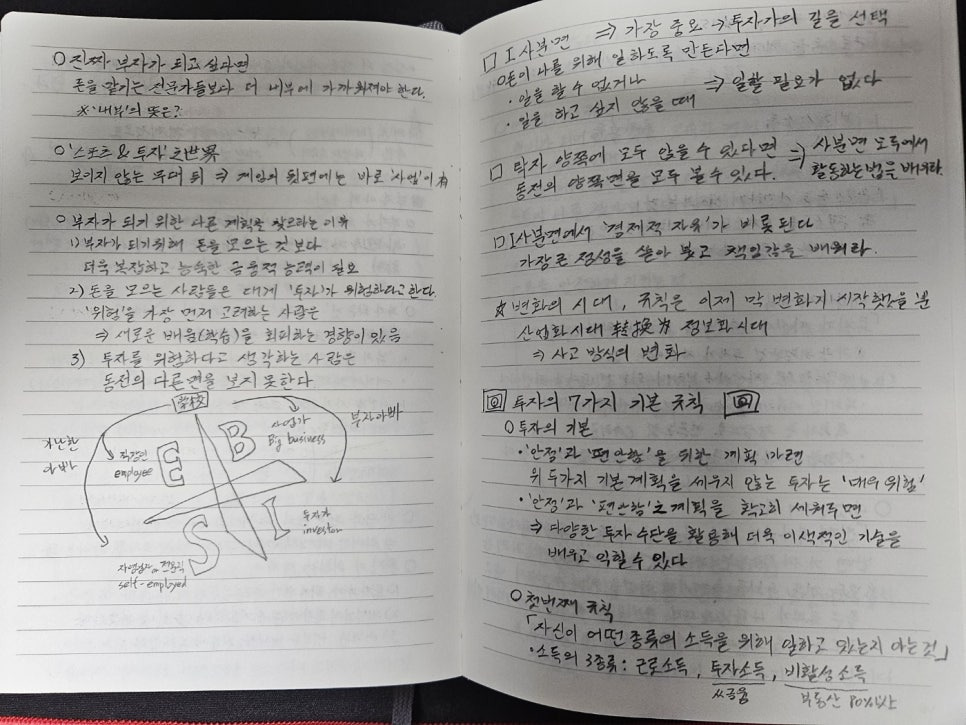 ○ 진짜 부자가 되고 싶다면
돈을 맡기는 전문가들보다 더 내부에 가까워져야 한다.
※ '내부'의 뜻은?
○ '스포츠 & 투자' 之 世界
보이지 않는 무대 뒤 ⇒ 게임의 뒷편에는 바로 '사업'이 有
○ 부자가 되기 위한 다른 계획을 찾으라는 이유
1) 부자가 되기위해 돈을 모으는 것 보다
더욱 복잡하고 능숙한 금융적 능력이 필요
2) 돈을 모으는 사람들은 대게 '투자'가 위험하다고 한다.
'위험'을 가장 먼저 고려하는 사람은
⇒ 새로운 배움(学習)을 회피하는 경향이 있음
3) 투자를 위험하다고 생각하는 사람은
동전의 다른면을 보지 못한다
学校
가난한
아빠
부자아빠
직장인
employee
E
B
사업가
Big business
S
I
투자가
investor
자영업자 or 전문직
self-employed
□ I 사분면 ⇒ 가장 중요 → 투자가의 길을 선택
○ 돈이 나를 위해 일하도록 만든다면
· 일을 할 수 없거나
· 일을 하고 싶지 않을 때
⇒ 일할 필요가 없다
□ 탁자 양쪽에 모두 앉을 수 있다면
동전의 양쪽면을 모두 볼 수 있다.
⇒ 사분면 모두에서
활동하는 법을 배워라.
□ I 사분면에서 '경제적 자유'가 비롯된다
가장 큰 정성을 쏟아 붓고 책임감을 배워라.
☆ 변화의 시대, 규칙은 이제 막 변화기 시작했을 뿐
산업화시대 転換为 정보화시대
⇒ 사고 방식의 변화
투자의 7가지 기본 규칙
○ 투자의 기본
· '안정'과 '편안함'을 위한 계획 마련
위 두가지 기본 계획을 세우지 않는 투자는 '매우 위험'
· '안정'과 '편안함' 之 계획을 확고히 세워두면
⇒ 다양한 투자 수단을 활용해 더욱 이색적인 기술을
배우고 익힐 수 있다
○ 첫번째 규칙
「자신이 어떤 종류의 소득을 위해 일하고 있는지 아는 것」
· 소득의 3종류 : 근로소득, 투자소득, 비활성소득
부동산 80%이상